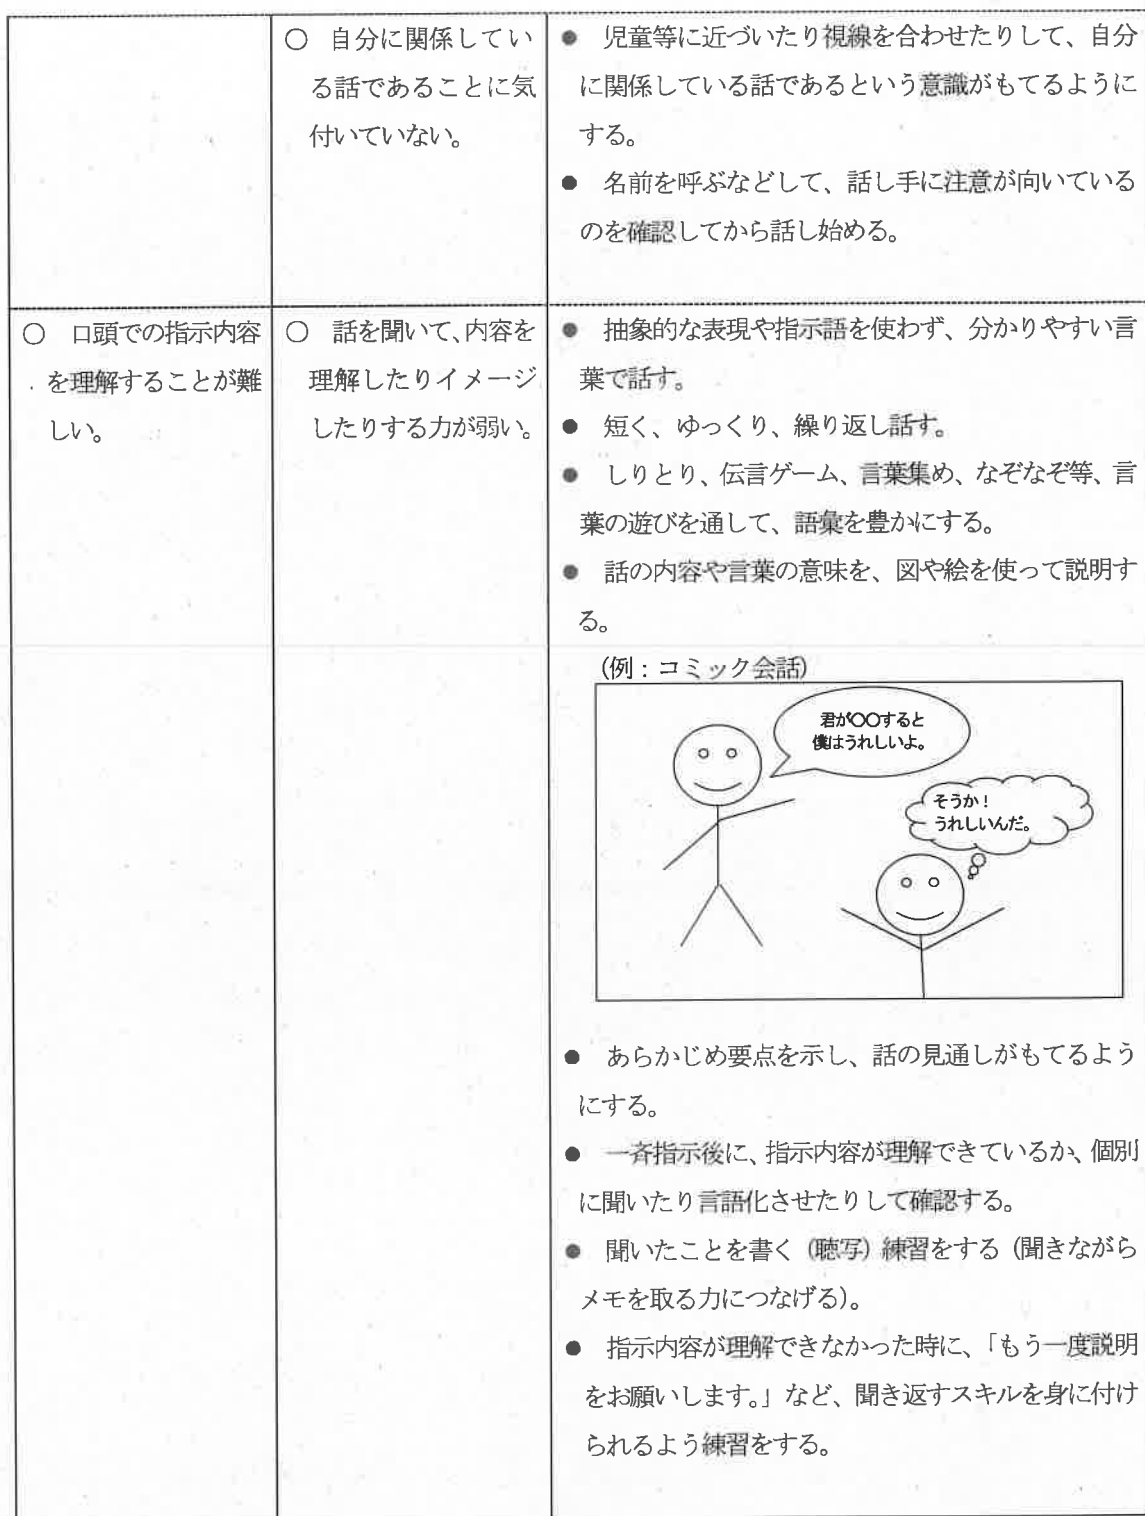 ○　自分に関係してい
る話であることに気
付いていない。
●　児童等に近づいたり視線を合わせたりして、自分
に関係している話であるという意識がもてるように
する。
●　名前を呼ぶなどして、話し手に注意が向いている
のを確認してから話し始める。
○　口頭での指示内容
を理解することが難
しい。
○　話を聞いて、内容を
理解したりイメージ
したりする力が弱い。
●　抽象的な表現や指示語を使わず、分かりやすい言
葉で話す。
●　短く、ゆっくり、繰り返し話す。
●　しりとり、伝言ゲーム、言葉集め、なぞなぞ等、言
葉の遊びを通して、語彙を豊かにする。
●　話の内容や言葉の意味を、図や絵を使って説明す
る。
(例：コミック会話)
君が〇〇すると
僕はうれしいよ。
そうか！
うれしいんだ。
●　あらかじめ要点を示し、話の見通しがもてるよう
にする。
●　一斉指示後に、指示内容が理解できているか、個別
に聞いたり言語化させたりして確認する。
●　聞いたことを書く（聴写）練習をする（聞きながら
メモを取る力につなげる）。
●　指示内容が理解できなかった時に、「もう一度説明
をお願いします。」など、聞き返すスキルを身に付け
られるよう練習をする。